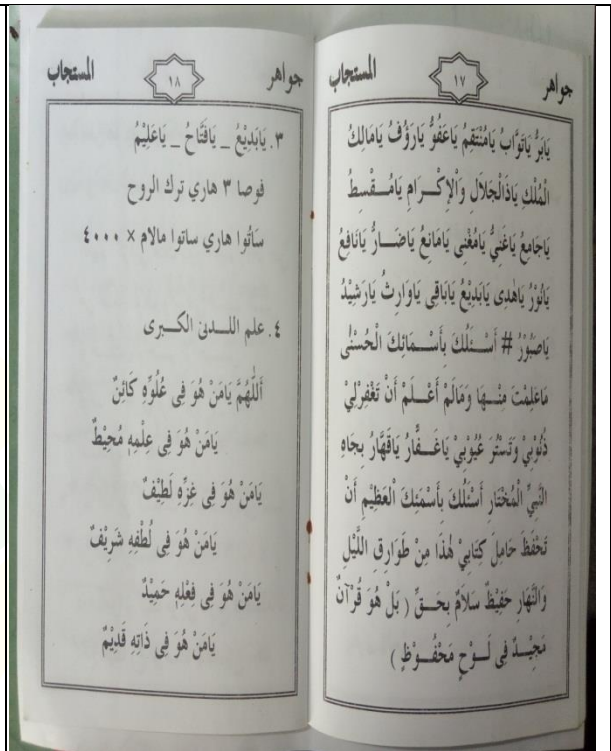 جواهر ١٧ المستجاب
يَابَرُّ يَاتَوَّابُ يَامُنْتَقِمُ يَاعَفُوُّ يَارَؤُفُ يَامَالِكُ
الْمُلْكِ يَاذَالْجَلاَلِ وَاْلإِكْرَامِ يَامُقْسِطُ
يَاجَامِعُ يَاغَنِيُّ يَامُغْنِى يَامَانِعُ يَاضَارُّ يَانَافِعُ
يَانُوْرُ يَاهٰدِى يَابَدِيْعُ يَابَاقِى يَاوَارِثُ يَارَشِيْدُ
يَاصَبُوْرُ # أَسْئَلُكَ بِأَسْمَائِكَ الْحُسْنٰى
مَاعَلِمْتَ مِنْهَا وَمَالَمْ أَعْلَمْ أَنْ تَغْفِرْلِيْ
ذُنُوْبِيْ وَتَسْتُرَ عُيُوْبِيْ يَاغَفَّارُ يَاقَهَّارُ بِجَاهِ
النَّبِيِّ الْمُخْتَارِ أَسْئَلُكَ بِأَسْمَئِكَ الْعَظِيْمِ أَنْ
تَحْفَظَ حَامِلَ كِتَابِيْ هٰذَا مِنْ طَوَارِقِ اللَّيْلِ
وَالنَّهَارِ حَفِيْظٌ سَلاَمٌ بِحَقِّ ( بَلْ هُوَ قُرْآنٌ
مَجِيْدٌ فِى لَوْحٍ مَحْفُوْظٍ )
جواهر ١٨ المستجاب
٣. يَابَدِيْعُ _ يَافَتَّاحُ _ يَاعَلِيْمُ
فوصا ٣ هاري ترك الروح
سَاتُوا هاري ساتوا مالام × ٤٠٠٠
٤. علم اللدنى الكبرى
أَللّٰهُمَّ يَامَنْ هُوَ فِى عُلُوِّهِ كَائِنٌ
يَامَنْ هُوَ فِى عِلْمِهِ مُحِيْطٌ
يَامَنْ هُوَ فِى عِزِّهِ لَطِيْفٌ
يَامَنْ هُوَ فِى لُطْفِهِ شَرِيْفٌ
يَامَنْ هُوَ فِى فِعْلِهِ حَمِيْدٌ
يَامَنْ هُوَ فِى ذَاتِهِ قَدِيْمٌ